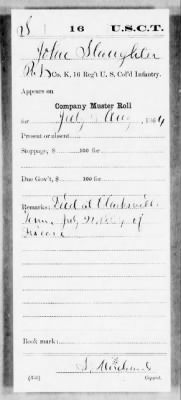 S 16 U.S.C.T.
John Slaughter
Pvt, Co. K, 16 Reg't U. S. Col'd Infantry.
Appears on
Company Muster Roll
for July & Aug, 1864
Present or absent
Stoppage, $ 100 for
Due Gov't, $ 100 for
Remarks: Died at Clarksville
Tenn. July 21, of
Disease
Book mark:
(358) Copyist.